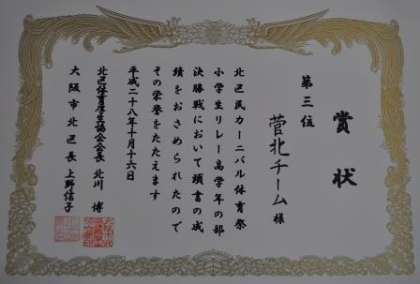 賞状
第三位
菅北チーム様
北区民カーニバル体育祭
小学生リレー高学年の部
決勝戦において頭書の成
績をおさめられたので
その栄誉をたたえます
平成二十八年十月十六日
北区体育厚生協会会長 北川 博
大阪市北区長 上野信子